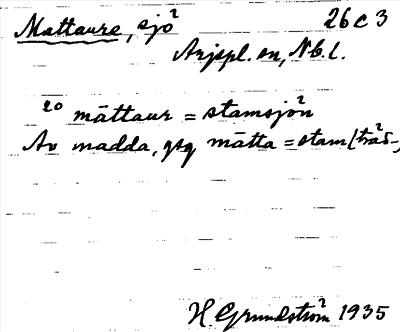 Mattaure, sjö 26 c 3
Arjspl. sn, Nb. l.
20 māttaur = stamsjön
Av madda, gsg mātta = stam (träd-)
H Grundström 1935